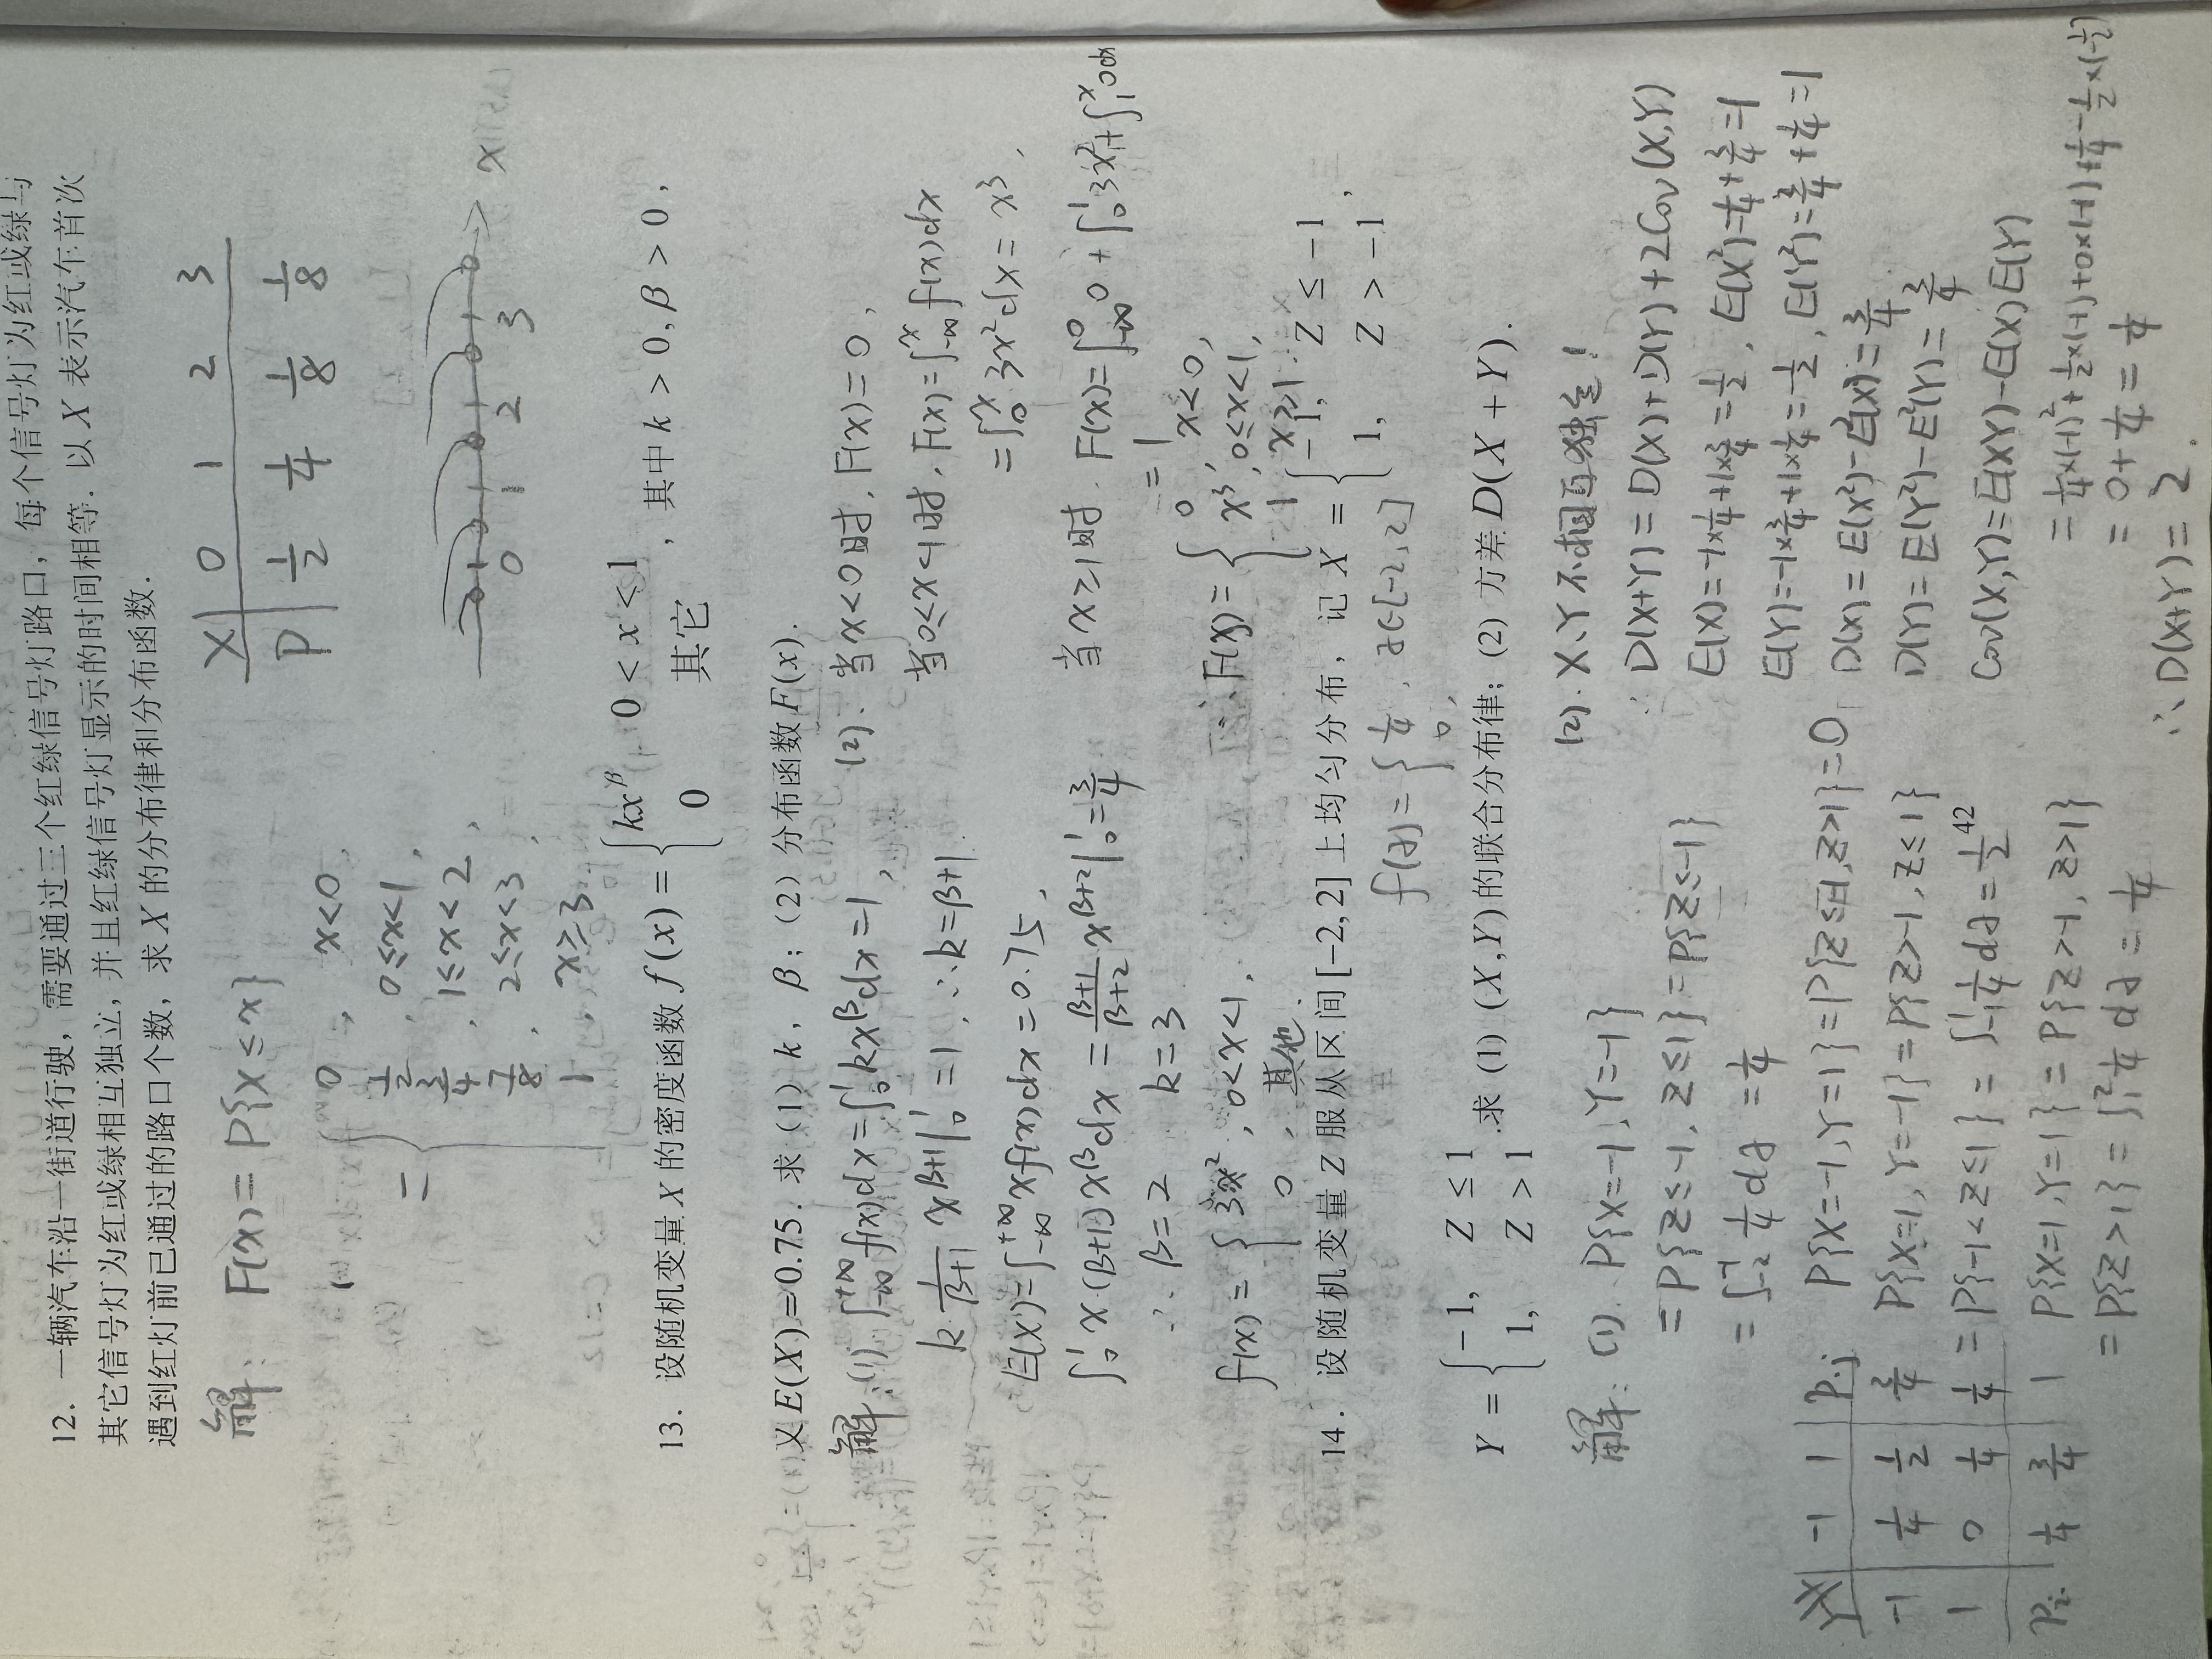 12. 一辆汽车沿一街道行驶，需要通过三个红绿信号灯路口，每个信号灯为红或绿与
其它信号灯为红或绿相互独立，并且红绿信号灯显示的时间相等. 以 X 表示汽车首次
遇到红灯前已通过的路口个数，求 X 的分布律和分布函数.
解： F(x) = P{X ≤ x}
= { 0 , x<0,
1/2 , 0≤x<1,
3/4 , 1≤x<2,
7/8 , 2≤x<3,
1 , x≥3
X | 0 1 2 3
P | 1/2 1/4 1/8 1/8
0 1 2 3 x
13. 设随机变量 X 的密度函数 f(x) = { kx^β 0 < x < 1 , 其中 k > 0, β > 0 ,
0 其它
又 E(X) = 0.75. 求（1）k， β；（2）分布函数 F(x).
解：(1) ∫_{-∞}^{+∞} f(x)dx = ∫_0^1 kx^β dx = 1,
k · 1/(β+1) x^{β+1}|_0^1 = 1, ∴ k=β+1.
E(X) = ∫_{-∞}^{+∞} xf(x)dx = 0.75,
∫_0^1 x·(β+1)x^β dx = (β+1)/(β+2) x^{β+2}|_0^1 = 3/4
∴ β=2 k=3
f(x) = { 3x² , 0<x<1,
0 , 其他.
(2). 当 x<0 时, F(x) = 0 ,
当 0≤x<1 时, F(x) = ∫_{-∞}^x f(x)dx
= ∫_0^x 3x² dx = x³ ,
当 x≥1 时. F(x) = ∫_{-∞}^0 0 + ∫_0^1 3x² + ∫_1^x 0dx
= 1
∴ F(x) = { 0 , x<0,
x³ , 0≤x<1,
1 x≥1.
14. 设随机变量 Z 服从区间 [−2, 2] 上均匀分布，记 X = { −1, Z ≤ −1 ,
1, Z > −1
f(z) = { 1/4 , z∈[-2,2]
0,
Y = { −1, Z ≤ 1 .求 (1) (X,Y) 的联合分布律；(2) 方差 D(X + Y).
1, Z > 1
解：(1). P{X=-1, Y=-1}
= P{Z≤-1, Z≤1} = P{Z≤-1}
= ∫_{-2}^{-1} 1/4 dz = 1/4
P{X=-1, Y=1} = P{Z≤-1, Z>1} = 0
P{X=1, Y=-1} = P{Z>-1, Z≤1}
= P{-1<Z≤1} = ∫_{-1}^1 1/4 dz = 1/2
P{X=1, Y=1} = P{Z>-1, Z>1}
= P{Z>1} = ∫_1^2 1/4 dz = 1/4
Y\X | -1 1 | P.j
-1 | 1/4 1/2 | 3/4
1 | 0 1/4 | 1/4
Pi. | 1/4 3/4 | 1
42
(2). X、Y 不相互独立！
∴ D(X+Y) = D(X)+D(Y)+2Cov(X,Y)
E(X) = -1×1/4+1×3/4 = 1/2 , E(X²)=1/4+3/4=1
E(Y) = -1×3/4+1×1/4 = -1/2 , E(Y²)=3/4+1/4=1
D(X) = E(X²)-E²(X) = 3/4
D(Y) = E(Y²)-E²(Y) = 3/4
Cov(X,Y) = E(XY)-E(X)E(Y)
= 1/4×(-1)²+1/2×(-1)+0×(-1)+1/4-1/2×(-1/2)
= 0+1/4 = 1/4
∴ D(X+Y) = 2.